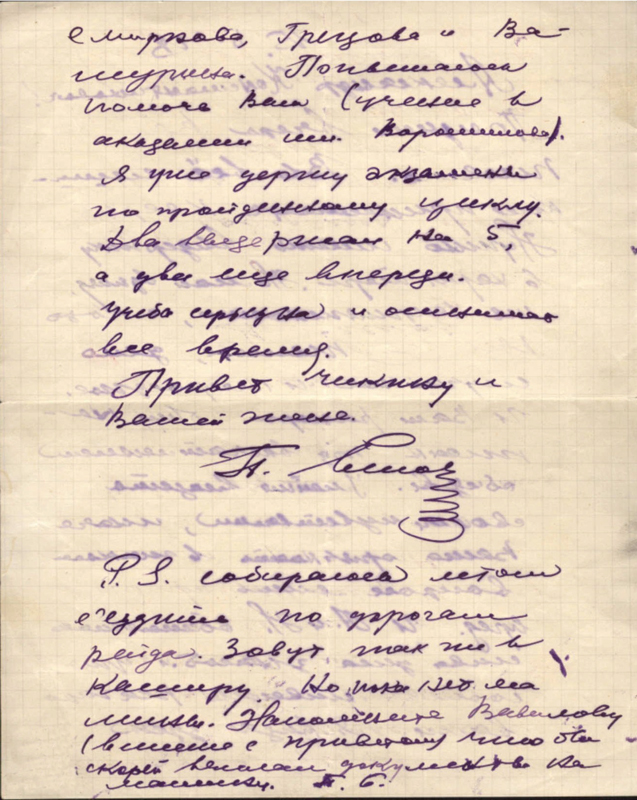 Смирнова, Грецова и Ва-
шурина. Попытаюсь
помочь Вам (учение в
академии им. Ворошилова).
Я уже держу экзамены
по пройденному циклу.
Два выдержал на 5,
а два еще впереди.
Учеба серьезна и отнимает
все время.
Привет Чикину и
Вашей жене.
П.
P. S. собираюсь летом
съездить по дорогам
рейда. Зовут также в
Каширу. Но пока нет ма
шины. Напомните Вавилову
(вместе с приветом) что бы
скорей выслал документы на
машину. П. Б.